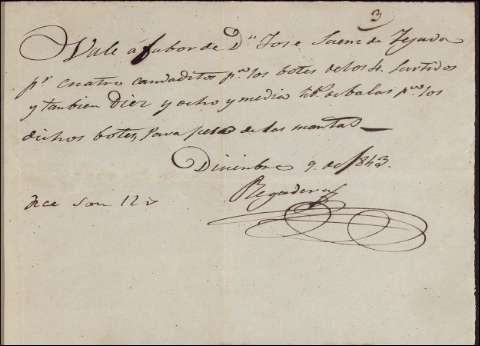 3
Vale a fabor de Dn Jose Saenz de Tejada
pr cuatro candaditos pa los botes de los 4 surtidos
y tanbien diez y ocho y media lbs de balas pa los
dichos botes, para peso de las mantas
Diciembre 9. de 1843.
son 12